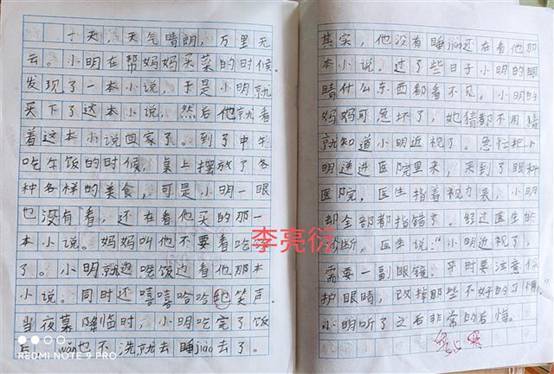 一天，天气晴朗，万里无
云。小明在帮妈妈买菜的时候
发现了一本小说，于是小明就
买下了这本小说，然后他就看
着这本小说回家了。到了中午
吃午饭的时候，桌上摆放了各
种各样的美食，可是小明一眼
也没有看，还在看他买的那一
本小说。妈妈叫他不要看吃
了。小明就边吃饭边看他那本
小说。同时还嘻嘻哈哈的笑声
当夜幕降临时，小明吃完了饭
wǎn也不洗就去睡jiào去了。
REDMI NOTE 9 PRO
其实，他没有睡jiào还在看他那
本小说。过了些日子小明的眼
睛什么东西都看不见。小明的
妈妈可急坏了，她猜都不用猜
就知道小明近视了。急忙把小
明送进医院里来，来到了眼科
医院，医生指着视力表，小明
却全部都指错了。经过医生的
诊断。医生说："小明近视了，
需要一副眼镜。平时要注意保
护眼睛，改掉那些不好的习惯"
小明听了之后非常的后悔。
李亮衍